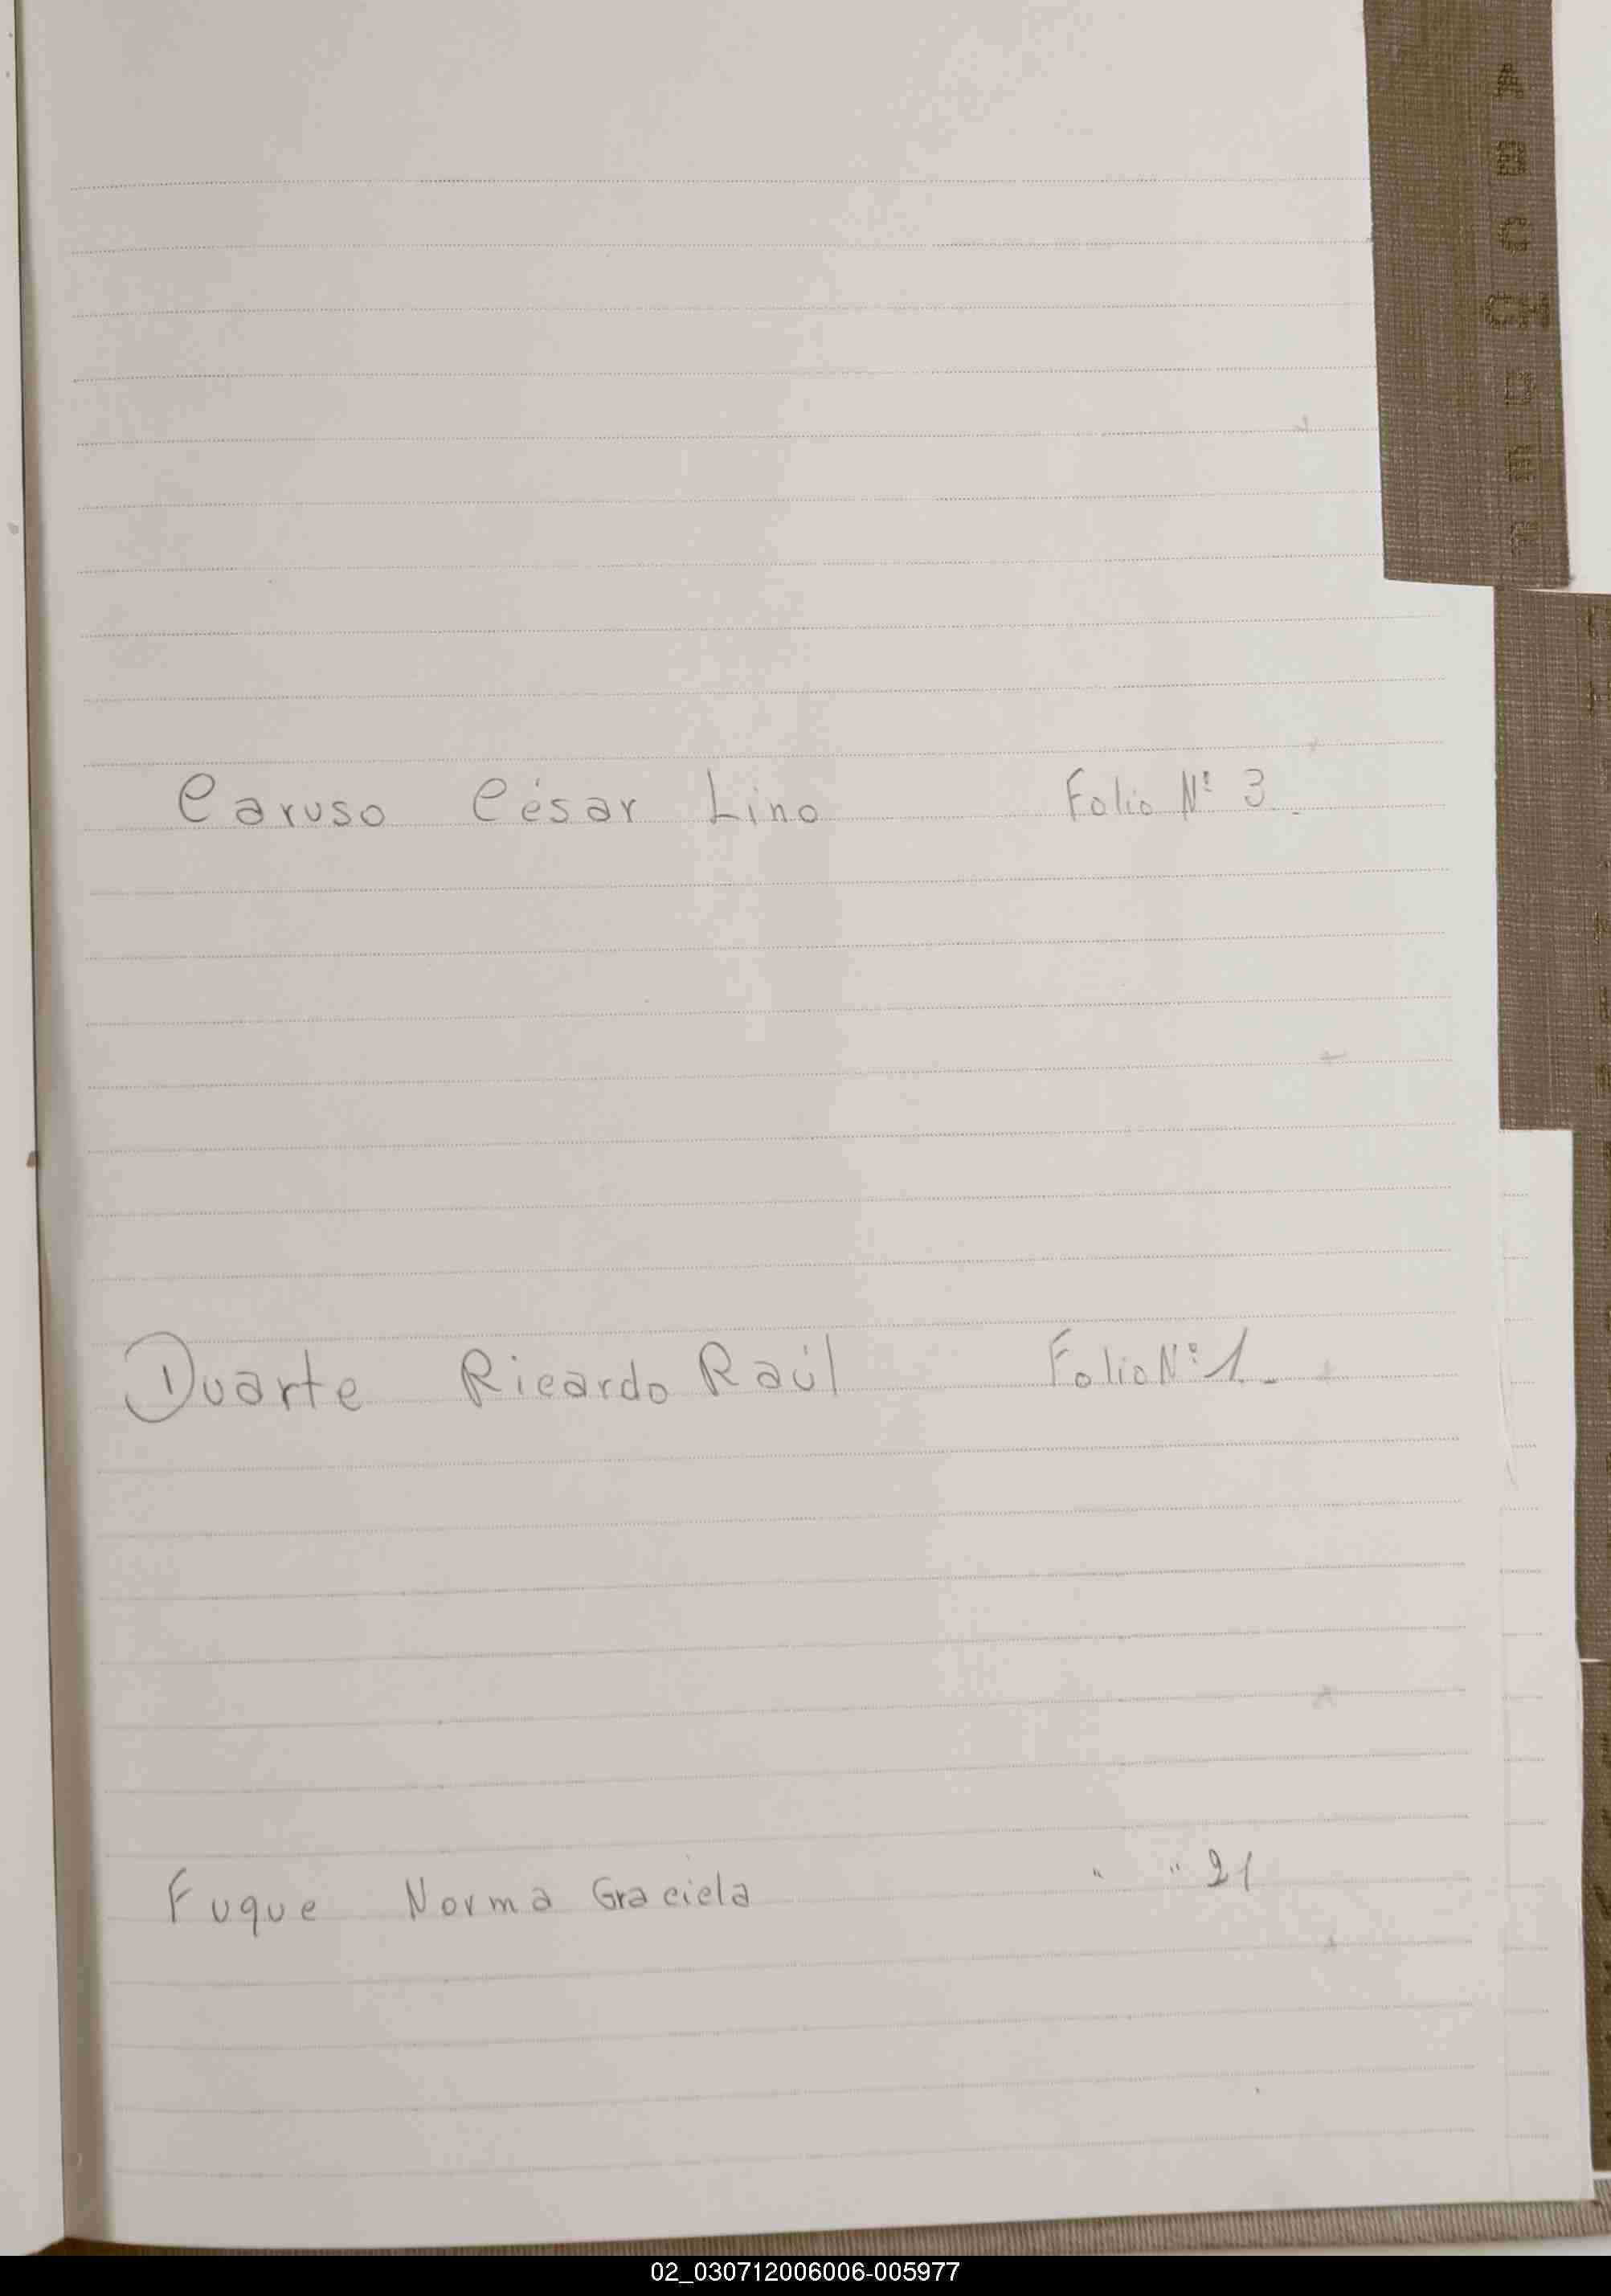 A
B
C
CH
D
E
F
Caruso César Lino Folio Nº 3.
Duarte Ricardo Raúl Folio Nº 1.
Fuque Norma Graciela " " 21
02_030712006006-005977